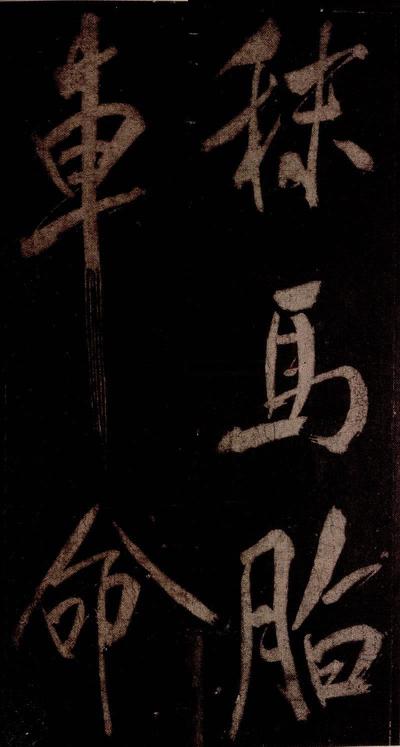 秣馬脂
車命